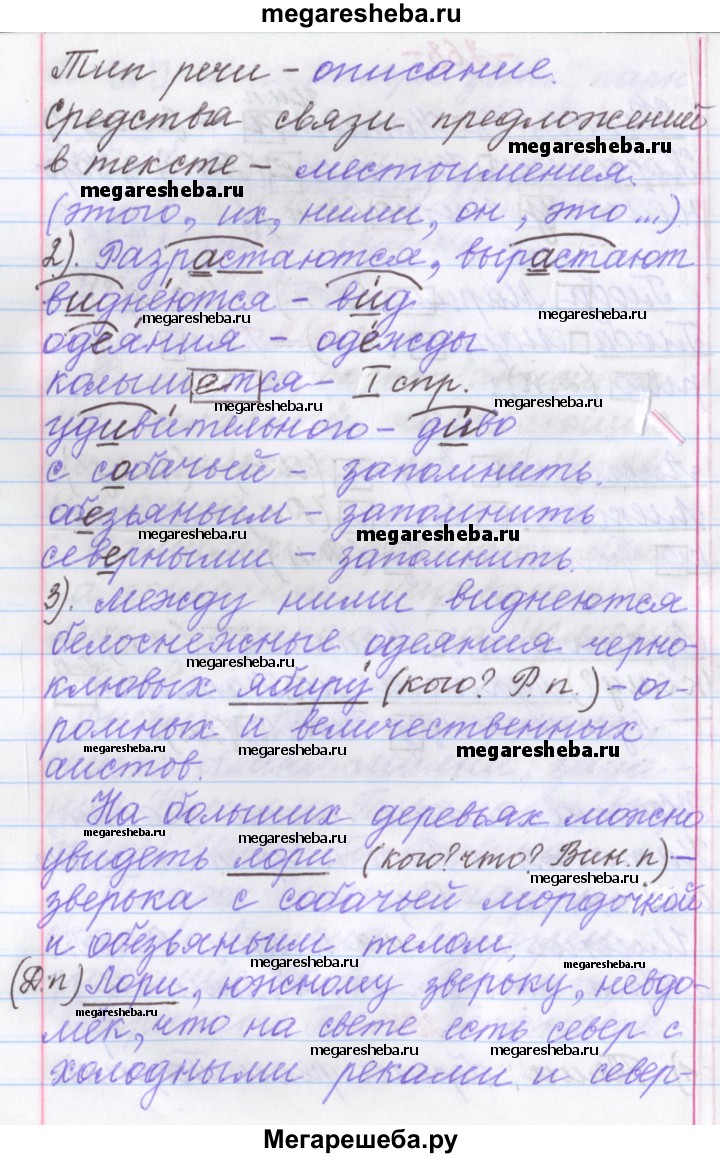 megaresheba.ru
Тип речи – описание.
Средства связи предложений
megaresheba.ru
в тексте – местоимения.
megaresheba.ru
(этого, их, ними, он, это...)
2). Разрастаются, вырастают
виднеются – вид
megaresheba.ru megaresheba.ru
одеяния – одежды
колышется – I спр.
megaresheba.ru megaresheba.ru
удивительного – диво
с собачьей – запомнить.
megaresheba.ru
обезьяньим – запомнить
megaresheba.ru megaresheba.ru
северными – запомнить.
3). Между ними виднеются
белоснежные одеяния черно-
megaresheba.ru megaresheba.ru
клювых ябиру (кого? Р.п.) – ог-
megaresheba.ru
ромных и величественных
megaresheba.ru megaresheba.ru megaresheba.ru
аистов.
На больших деревьях можно
megaresheba.ru megaresheba.ru
увидеть лори (кого? что? Вин.п) –
megaresheba.ru
зверька с собачьей мордочкой
megaresheba.ru
и обезьяньим телом.
megaresheba.ru
(Д.п) Лори, южному зверьку, невдо-
megaresheba.ru
мёк, что на свете есть север с
megaresheba.ru megaresheba.ru
холодными реками и север-
Мегарешеба.ру